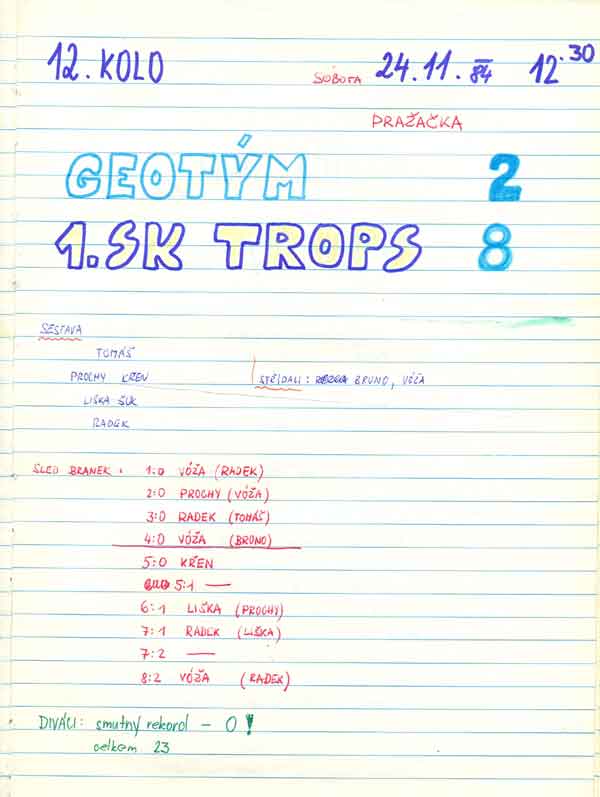 12. KOLO SOBOTA 24.11.84 12.30
PRAŽAČKA
GEOTÝM 2
1. SK TROPS 8
SESTAVA
TOMÁŠ
PROCHY KŘEN STŘÍDALI: BRUNO, VÓŽA
LIŠKA ŠUK
RADEK
SLED BRANEK: 1:0 VÓŽA (RADEK)
2:0 PROCHY (VÓŽA)
3:0 RADEK (TOMÁŠ)
4:0 VÓŽA (BRUNO)
5:0 KŘEN
5:1 —
6:1 LIŠKA (PROCHY)
7:1 RADEK (LIŠKA)
7:2 —
8:2 VÓŽA (RADEK)
DIVÁCI: smutný rekord - 0!
celkem 23